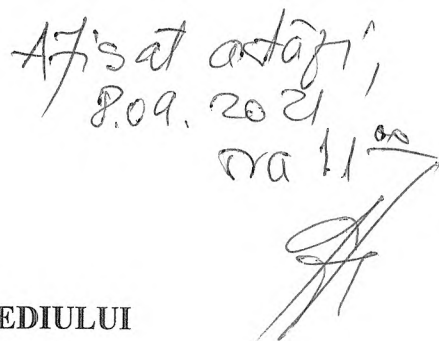 Afisat astăzi,
8.09.2021
ora 11⁰⁰
EDIULUI